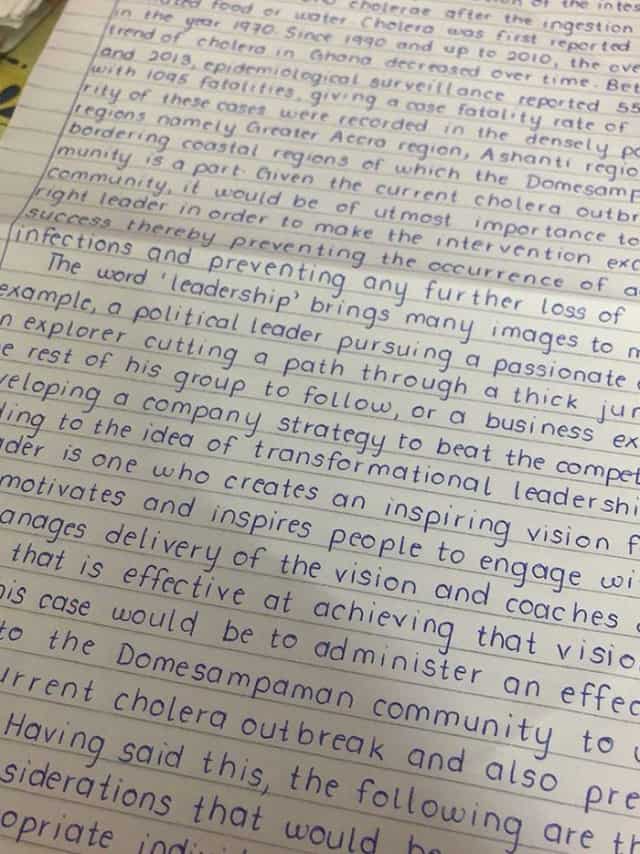 food or water Cholera was first reported
in the year 1970. Since 1990 and up to 2010, the ove
trend of cholera in Ghana decreased over time. Bet
and 2013, epidemiological surveillance reported 55
with 1095 fatalities, giving a case fatality rate of
rity of these cases were recorded in the densely po
regions namely Greater Accra region, Ashanti regio
bordering coastal regions of which the Domesamp
munity is a part. Given the current cholera outbr
community, it would be of utmost importance to
right leader in order to make the intervention exc
success thereby preventing the occurrence of a
infections and preventing any further loss of
The word 'leadership' brings many images to m
example, a political leader pursuing a passionate
n explorer cutting a path through a thick jun
e rest of his group to follow, or a business ex
veloping a company strategy to beat the compet
ding to the idea of transformational leadershi
ader is one who creates an inspiring vision f
motivates and inspires people to engage wi
anages delivery of the vision and coaches
that is effective at achieving that visio
his case would be to administer an effec
to the Domesampaman community to
urrent cholera outbreak and also pre
Having said this, the following are th
siderations that would be
opriate indi